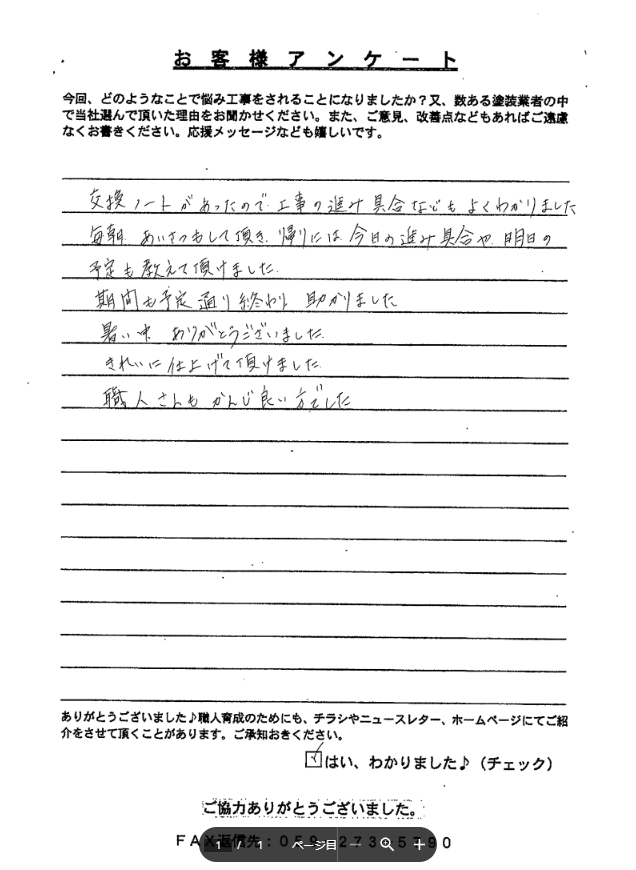 お客様アンケート
今回、どのようなことで悩み工事をされることになりましたか？又、数ある塗装業者の中
で当社選んで頂いた理由をお聞かせください。また、ご意見、改善点などもあればご遠慮
なくお書きください。応援メッセージなども嬉しいです。
交換ノートがあったので 工事の進み具合などもよくわかりました
毎朝 あいさつもして頂き 帰りには 今日の進み具合や 明日の
予定も教えて頂けました
期間も予定通り終わり 助かりました
暑い中 ありがとうございました
きれいに仕上げて頂けました
職人さんも かんじ良い方でした
ありがとうございました♪職人育成のためにも、チラシやニュースレター、ホームページにてご紹
介をさせて頂くことがあります。ご承知おきください。
はい、わかりました♪（チェック）
ご協力ありがとうございました。
FAX返信先：059
1 / 1 ページ目